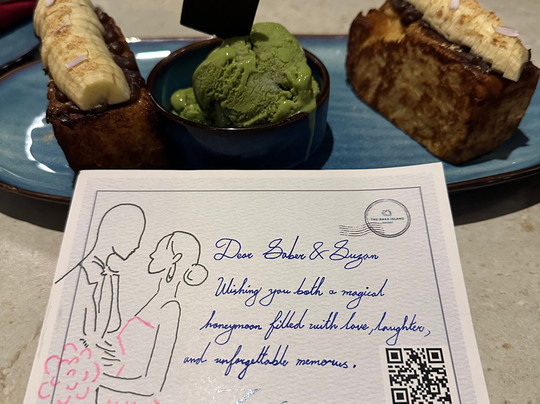 Dear Saber & Suzan
Wishing you both a magical
honeymoon filled with love, laughter,
and unforgettable memories.